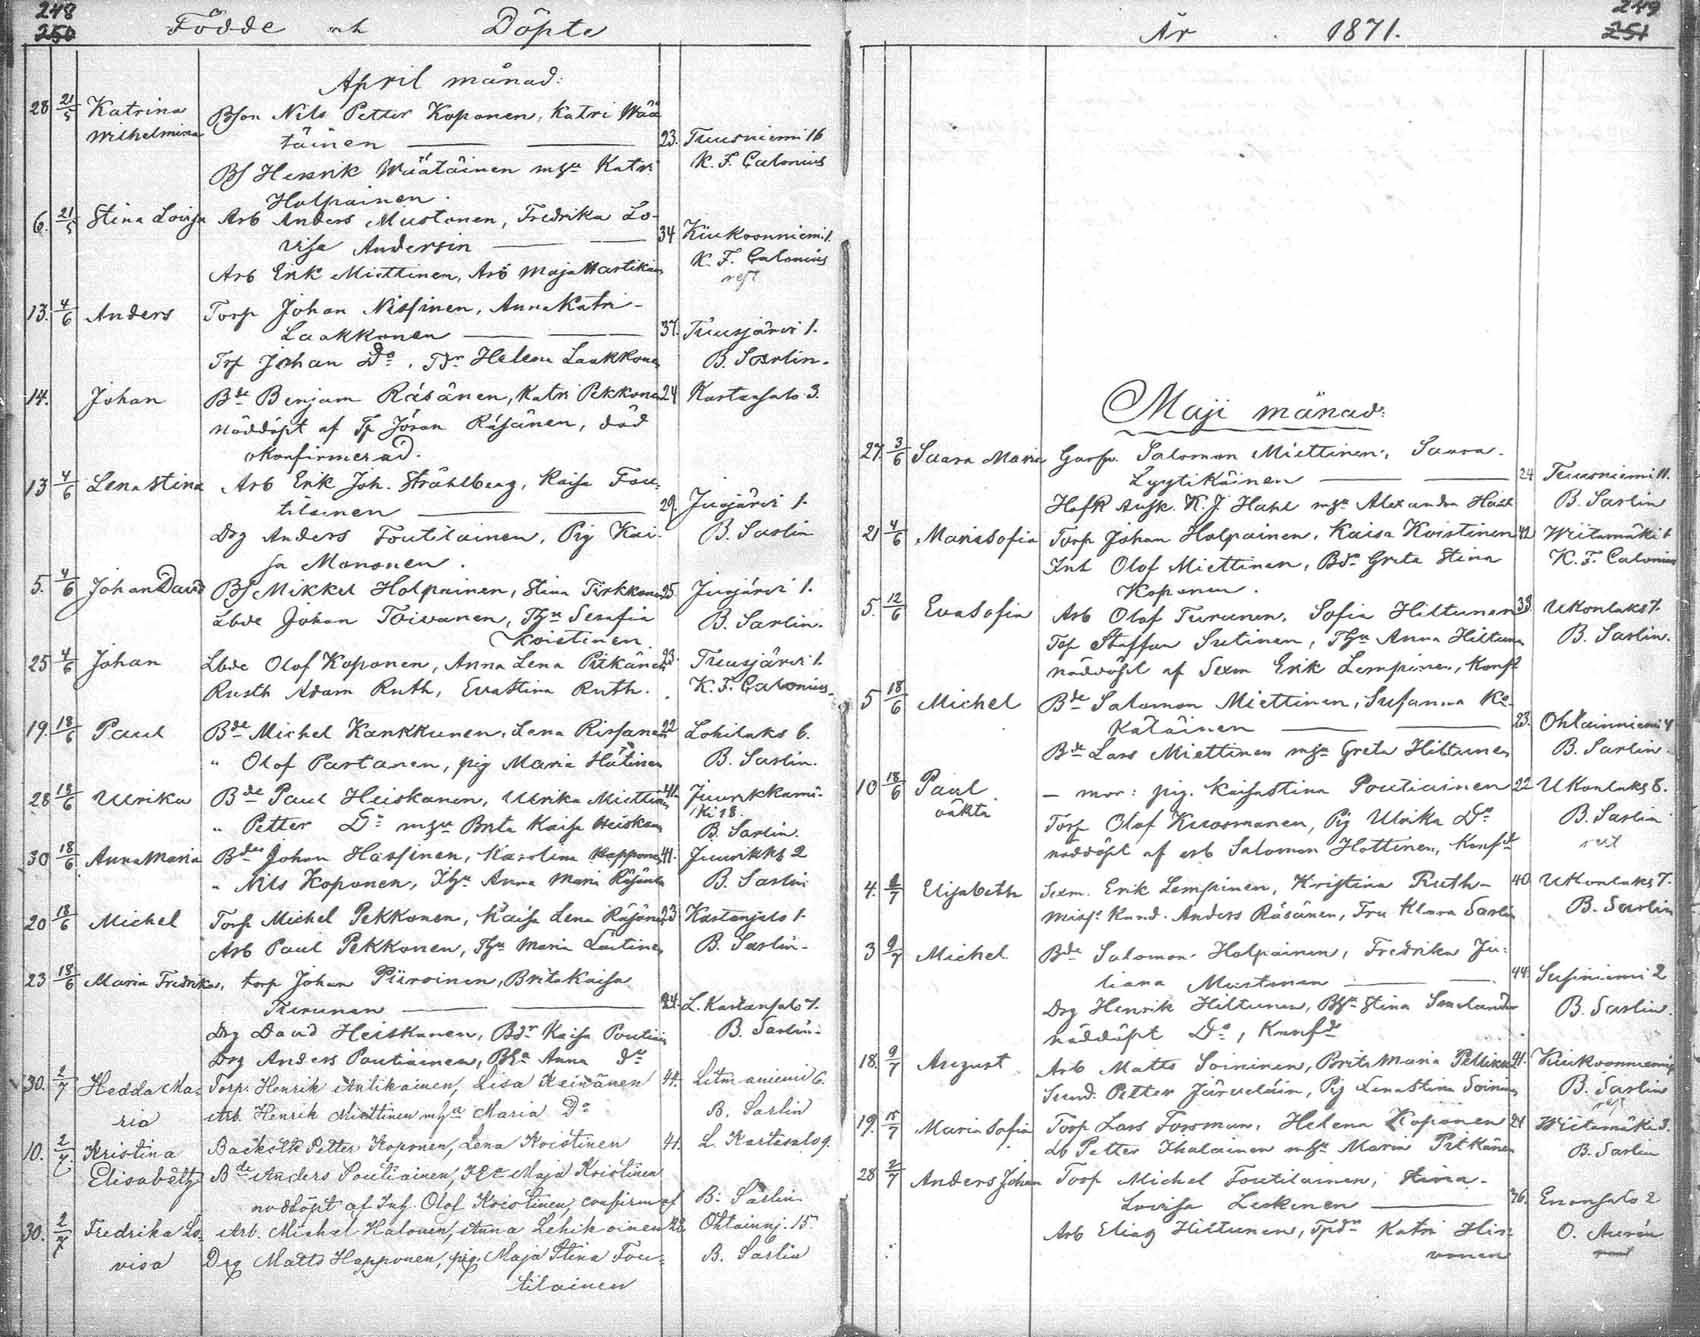 248
250
Födde och Döpte
April månad:
28 21/5 Katrina Bson Nils Petter Koponen, Katri Wää
Wilhelmina täinen 23. Tuusniemi 16
Bs Henrik Wäätäinen mhu Katri K. F. Calonius
Holpainen.
6. 21/5 Stina Lovisa Arb Anders Mustonen, Fredrika Lo-
visa Andersin 34 Kiukoonniemi 1.
Arb Erik Miettinen, Arb Maja Martikain K. F. Calonius
13. 4/6 Anders Torp Johan Nissinen, Anna Katri
Laakkonen 37. Tuusjärvi 1.
Trp Johan Do, Helena Laakkonen B. Sarlin.
14. Johan Bde Benjam Räsänen, Katri Pekkonen 24 Kartansalo 3.
nöddöpt af Tp Jöran Räsänen, död
okonfirmerad.
13 4/6 Lena Stina Arb Erik Joh. Stråhlberg, Kaisa Fou-
tilainen 29. Jusjärvi 1.
Drg Anders Foutilainen, Pig Kai- B. Sarlin
sa Mononen.
5. 4/6 Johan David Bs Mikkel Holpainen, Stina Pirkkonen 25 Jusjärvi 1.
Lbde Johan Toivanen, Serafia B. Sarlin.
Koistinen
25 4/6 Johan Lbde Olof Koponen, Anna Lena Pitkänen 23 Tuusjärvi 1.
Rusth Adam Ruth, Eva Stina Ruth. K. F. Calonius.
19. 18/6 Paul Bde Michel Kankkunen, Lena Rissanen 22 Lohilaks 6.
" Olof Partanen, pig Maria Hätinen B. Sarlin.
28 18/6 Ulrika Bde Paul Heiskanen, Ulrika Miettinen 41.
" Petter Do mhu Brita Kaisa Heiskan B. Sarlin.
30 18/6 Anna Maria Bde Johan Hassinen, Karolina Happonen 41. Juurikks 2
" Nils Koponen, Anna Maria Räsänen B. Sarlin
20 18/6 Michel Torp Michel Pekkonen, Kaisa Lena Räsänen 23 Kartansalo 1.
Arb Paul Pekkonen, Maria Laitinen B. Sarlin.
23 18/6 Maria Fredrika, torp Johan Piiroinen, Brita Kaisa
Turunen 24. L. Kartansalo 7.
Drg David Heiskanen, Kaisa Poutiain B. Sarlin.
Drg Anders Poutiainen, Anna Do
30. 2/7 Hedda Ma- Torp. Henrik Antikainen, Lisa Keinänen 44. Litmaniemi 6.
ria Arb. Henrik Miettinen mhu Maria Do B. Sarlin
10. 2/7 Kristina Backstk Petter Koponen, Lena Koistinen 41. L. Kartansalo 9.
Elisabeth Bde Anders Poutiainen, Maja Koistinen
nöddöpt af Inh. Olof Koistinen, confirm af B. Sarlin
30. 2/7 Fredrika Lo- Arb. Michel Halonen, Anna Lehikoinen 42. Ohtainnj. 15.
visa Drg Matts Happonen, pig. Maja Stina Fou- B. Sarlin
tilainen
249
251
År 1871.
Maji månad:
27. 3/6 Saara Maria Salomon Miettinen, Saara
Lyytikäinen 24 Tuusniemi 11.
K. J. Hahl mhu Alexandra Hahl B. Sarlin
21 4/6 Maria Sofia Torp Johan Holpainen, Kaisa Koistinen 42 Wiitamäki 1
Inh Olof Miettinen, Greta Stina K. F. Calonius
Koponen.
5. 12/6 Eva Sofia Arb Olof Turunen, Sofia Hiltunen 33. Ukonlaks 7.
Staffan Sutinen, Anna Hiltunen B. Sarlin.
nöddöpt af Sexm Erik Lempinen, Konf
5 18/6 Michel Bde Salomon Miettinen, Susanna Ko-
katäinen 23. Ohtainniemi 4
Bde Lars Miettinen mhu Greta Hiltunen B. Sarlin.
10 18/6 Paul — mor: pig. Kaisa Stina Poutiainen 22 Ukonlaks 8.
oäkta Torp Olof Kuosmanen, Pig Ulrika Do B. Sarlin
nöddöpt af arb Salomon Hottinen, Konfd
4. Elisabeth Sexm. Erik Lempinen, Kristina Ruth 40 Ukonlaks 7.
Kand. Anders Räsänen, Fru Klara Sarlin B. Sarlin
3 9/7 Michel Bde Salomon Holpainen, Fredrika Ju-
liana Mustonen 44. Susiniemi 2
Drg Henrik Hiltunen, Stina B. Sarlin.
nöddöpt Do, Konfd
18. 9/7 August Arb Matts Soininen, Brita Maria 41. Kiukoonniemi
Petter Pig Lena Stina Soininen B. Sarlin
19. 15/7 Maria Sofia Torp Lars Forsman, Helena Koponen 21 Wiitamäki 3.
Petter Ihalainen mhu Maria Pitkänen B. Sarlin
28 2/7 Anders Johan Torp Michel Foutilainen, Stina
Lovisa Leskinen 36. Enonsalo 2
Arb Elias Hiltunen, Katri Hir- O. Aurén
vonen